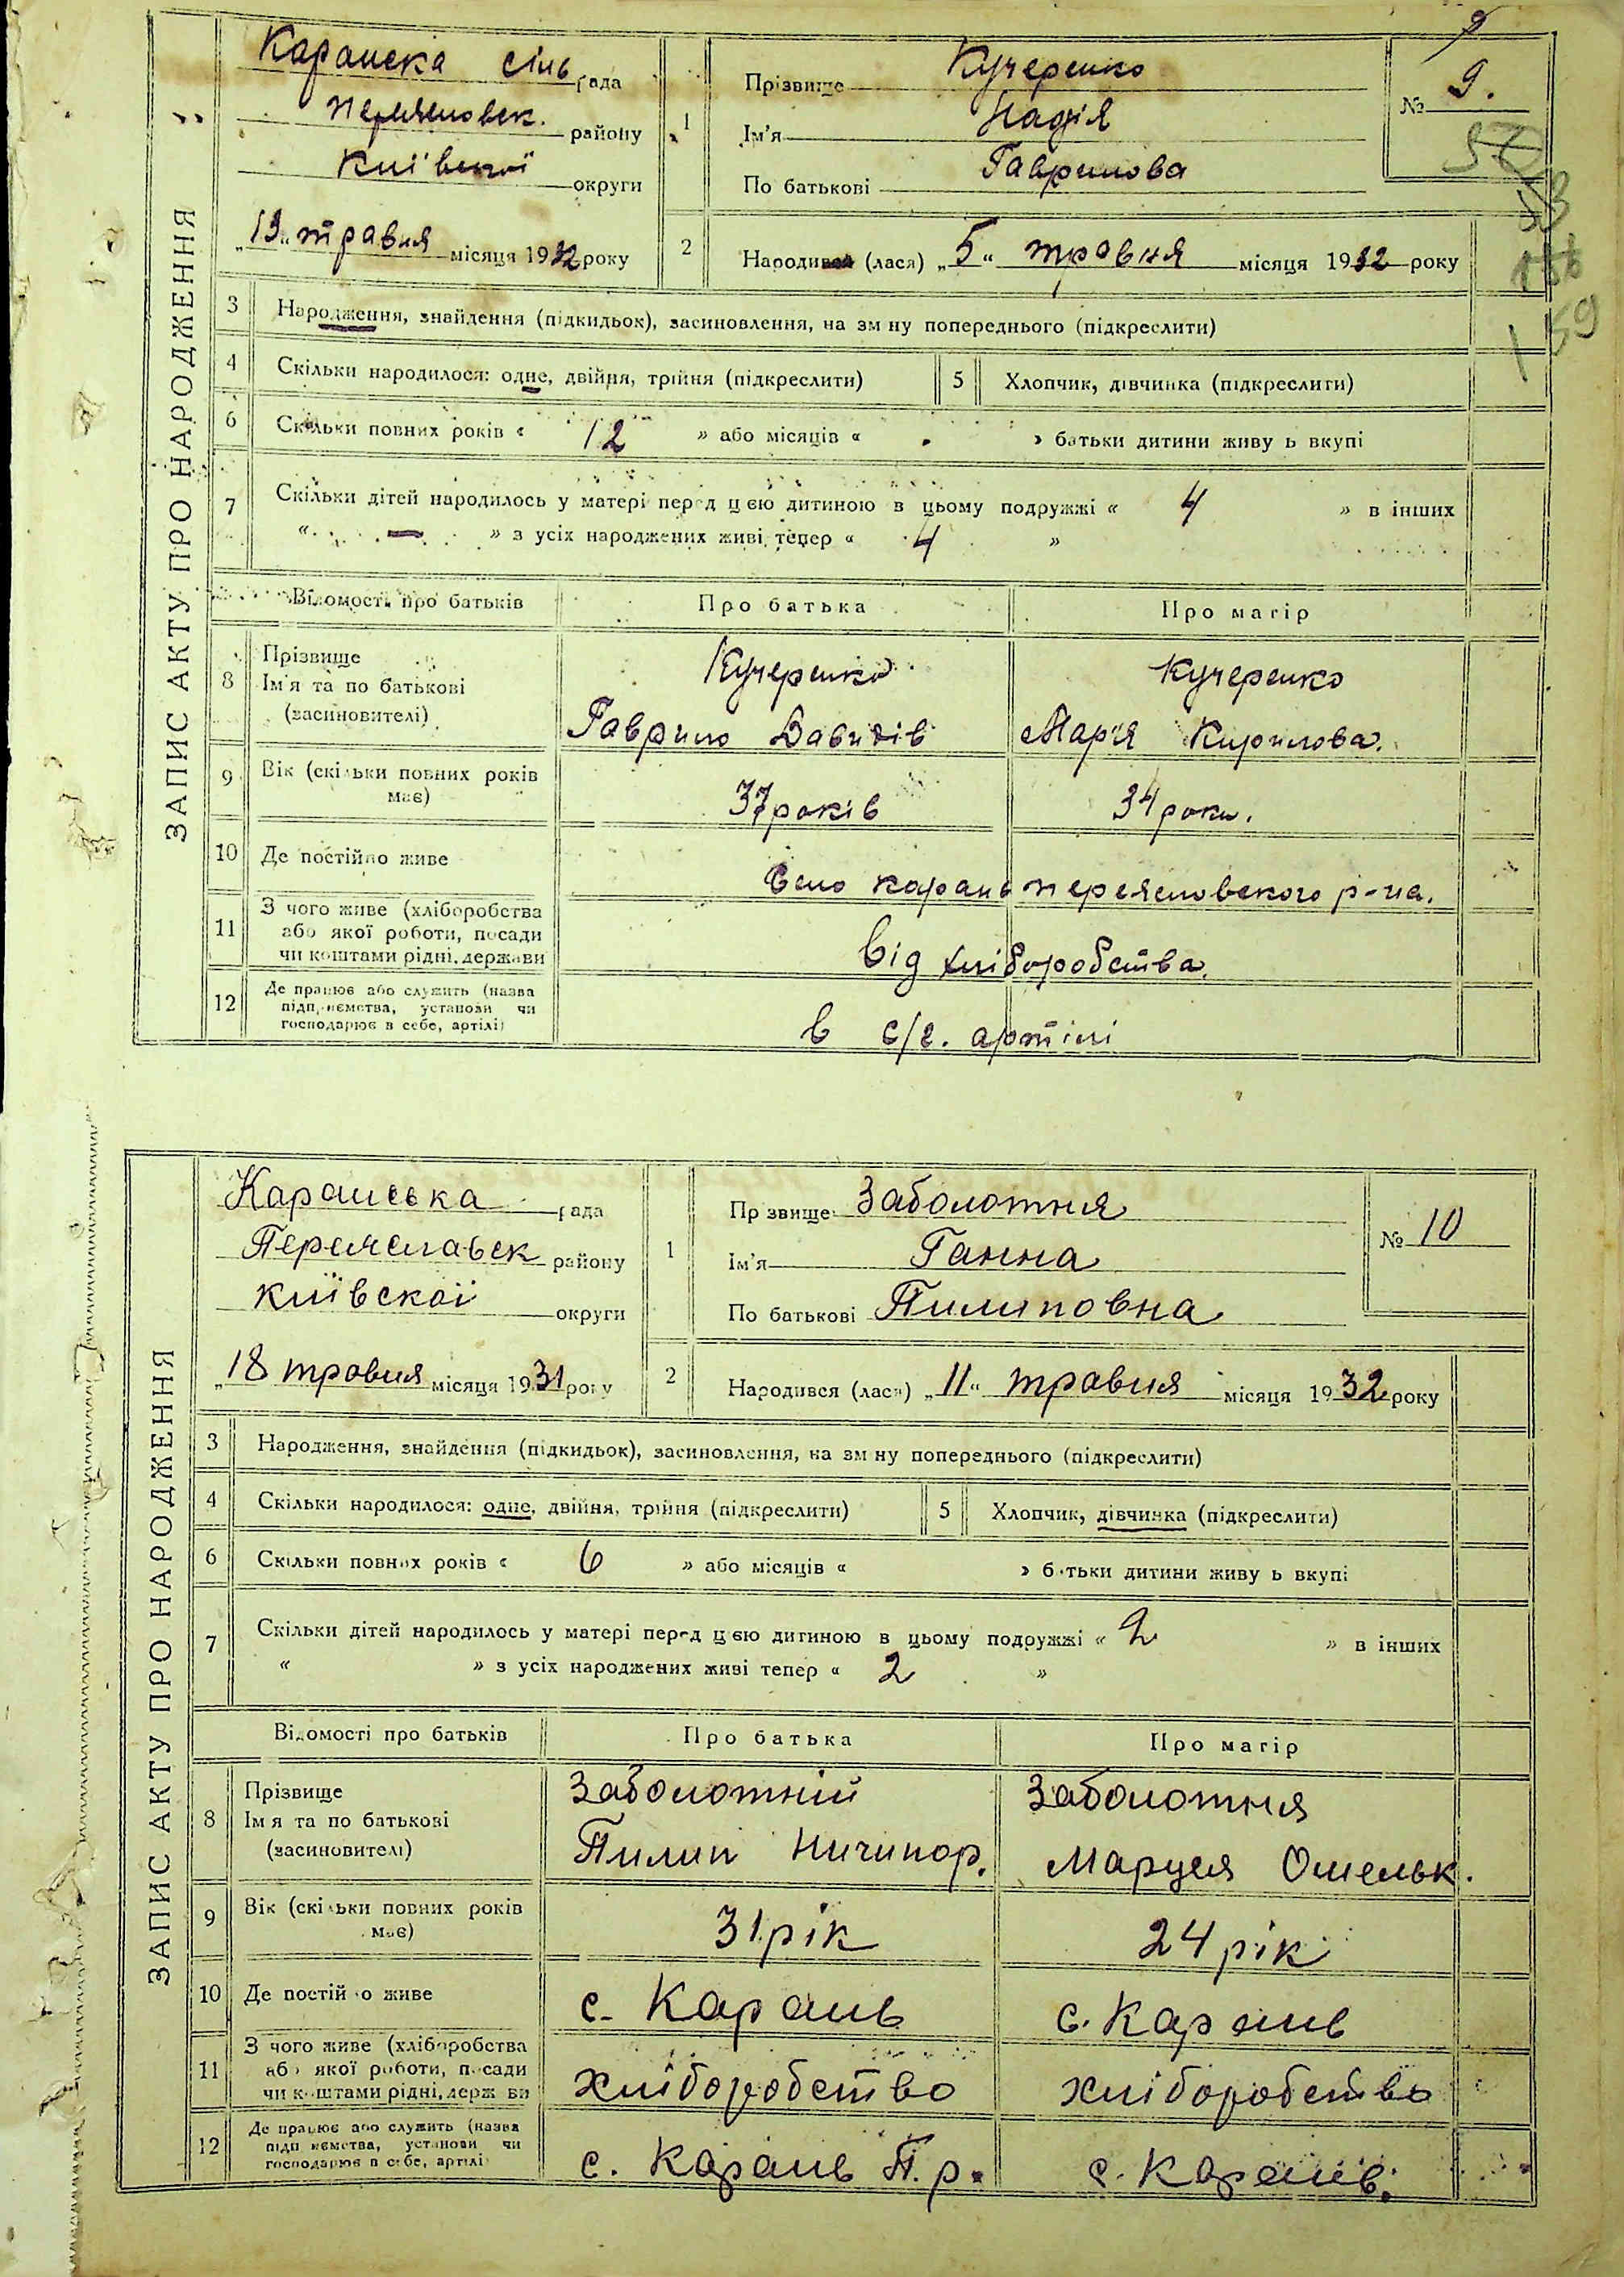 9
ЗАПИС АКТУ ПРО НАРОДЖЕННЯ
Каранска сіль рада
району
Київської округи
„13“ травня місяця 1932 року
1
Прізвище Кучеренко
Ім'я Надія
По батькові Гаврилова
№ 9.
53
159
2
Народився (лася) „5“ травня місяця 1932 року
3
Народження, знайдення (підкидьок), засиновлення, на зм ну попереднього (підкреслити)
4
Скільки народилося: одне, двійня, трійня (підкреслити)
5
Хлопчик, дівчинка (підкреслити)
6
Скільки повних років « 12 » або місяців « » батьки дитини живу ь вкупі
7
Скільки дітей народилось у матері перед цією дитиною в цьому подружжі « 4 » в інших
« — » з усіх народжених живі тепер « 4 »
Відомості про батьків
Про батька
Про матір
8
Прізвище
Ім'я та по батькові
(засиновителі)
Кучеренко
Гаврило Давидів
Кучеренко
Мар'я Кирилова.
9
Вік (скільки повних років
має)
37 років
34 роки.
10
Де постійно живе
Село Карань Переяславского р-на.
11
З чого живе (хліборобства
або якої роботи, посади
чи коштами рідні, держави
Від хліборобства.
12
Де працює або служить (назва
підприємства, установи чи
господарює в себе, артілі)
в с/г. артілі
ЗАПИС АКТУ ПРО НАРОДЖЕННЯ
Караньська рада
Переяславск району
київскої округи
„18 травня місяця 1931 року
1
Пр звище Заболотня
Ім'я Ганна
По батькові Пилиповна
№ 10
2
Народився (лася) „11“ травня місяця 1932 року
3
Народження, знайдення (підкидьок), засиновлення, на зм ну попереднього (підкреслити)
4
Скільки народилося: одне, двійня, трійня (підкреслити)
5
Хлопчик, дівчинка (підкреслити)
6
Скільки повних років « 6 » або місяців « » батьки дитини живу ь вкупі
7
Скільки дітей народилось у матері перед цією дитиною в цьому подружжі « 2 » в інших
« » з усіх народжених живі тепер « 2 »
Відомості про батьків
Про батька
Про матір
8
Прізвище
Ім'я та по батькові
(засиновителі)
Заболотній
Пилип Ничипор.
Заболотня
Омельк.
9
Вік (скільки повних років
має)
31 рік
24 рік
10
Де постійно живе
с. Карань
с. Карань
11
З чого живе (хліборобства
або якої роботи, посади
чи коштами рідні, держави
хліборобство
хліборобство
12
Де працює або служить (назва
підприємства, установи чи
господарює в себе, артілі
с. Карань П. р.
с. Карань.